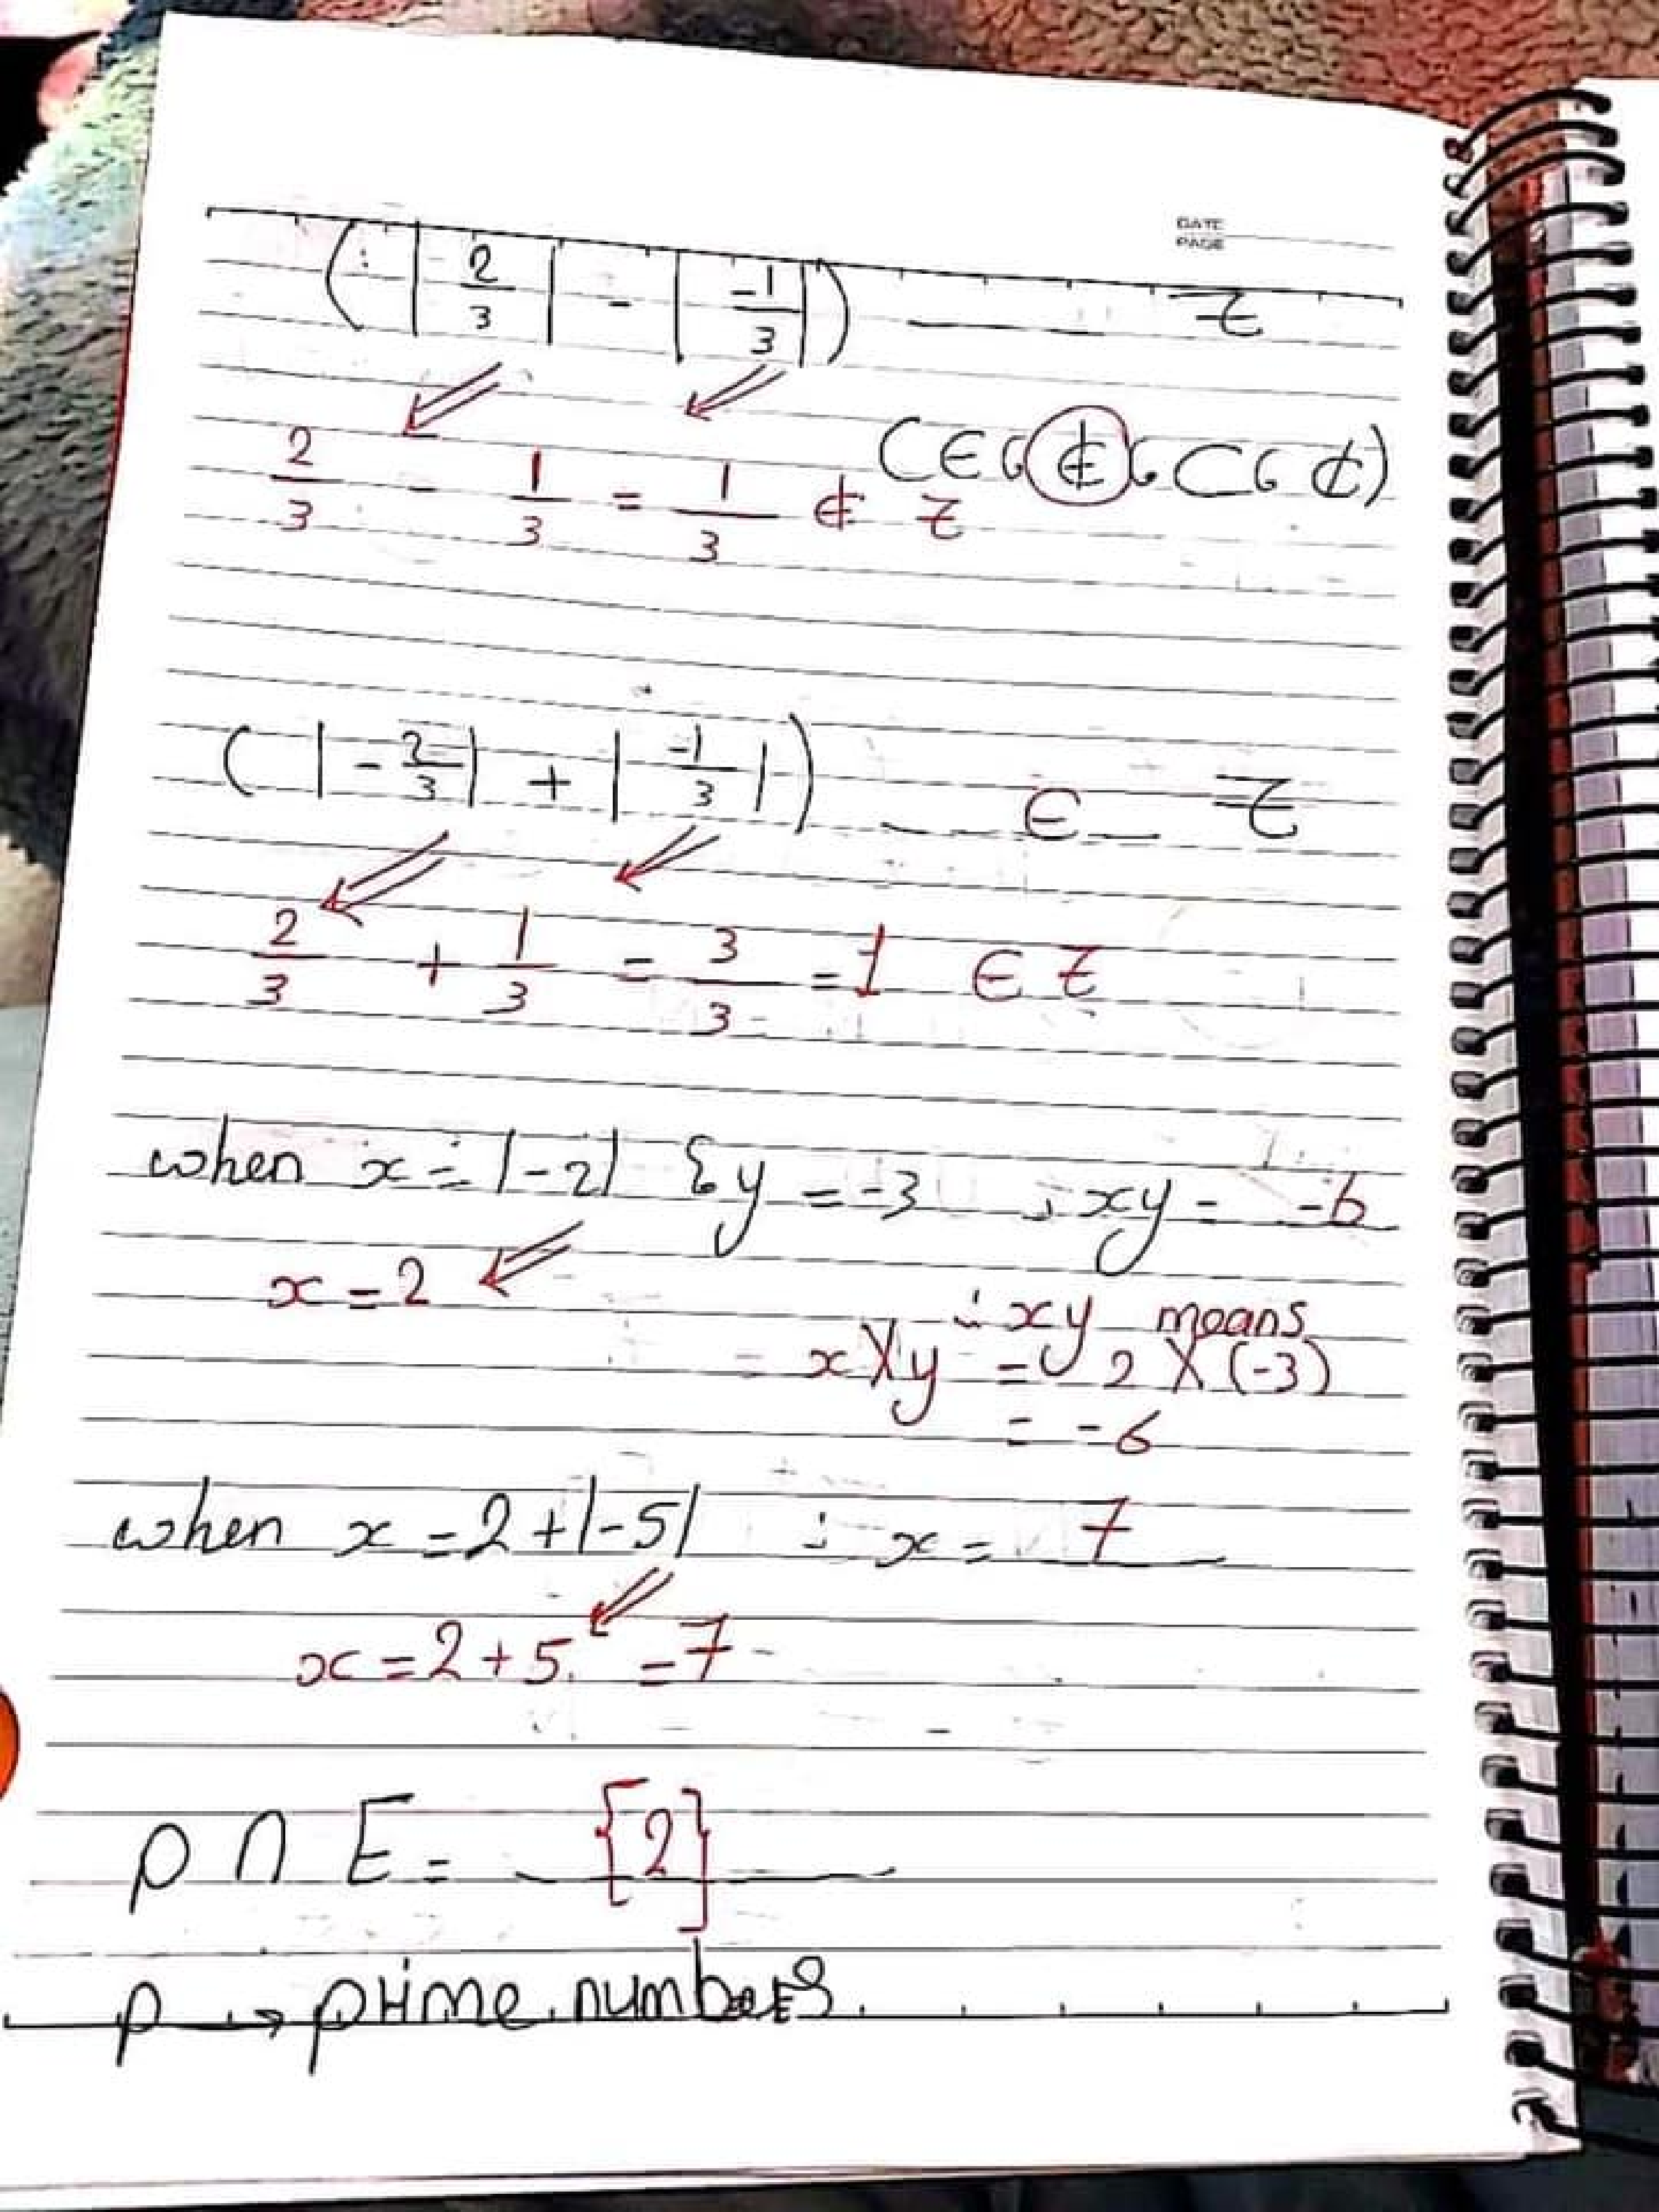 DATE
PAGE
(|2/3| - |-1/3|) ___ Z
(∈، ∉، ⊂، ⊄)
2/3 - 1/3 = 1/3 ∉ Z
(|-2/3| + |-1/3|) __∈__ Z
2/3 + 1/3 = 3/3 = 1 ∈ Z
when x = |-2| & y = -3 ∴ xy = -6
x = 2
∴ xy means
x X y = 2 X (-3)
= -6
when x = 2 + |-5| ∴ x = 7
x = 2 + 5 = 7
P ∩ E = {2}
P → prime numbers